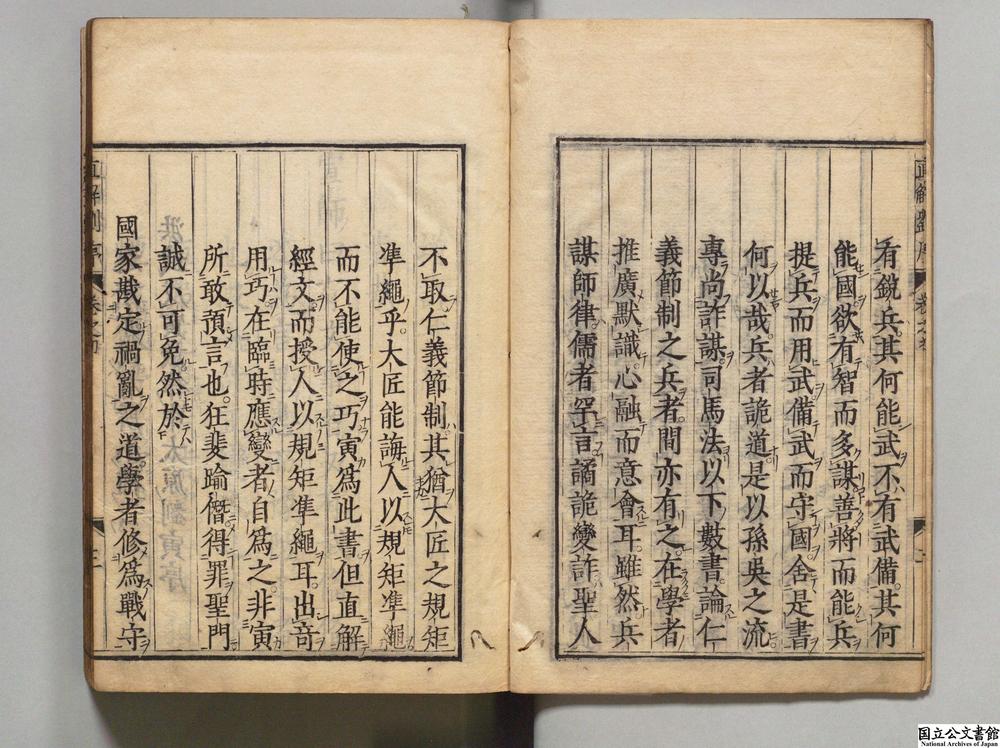 有銳兵其何能武不有武備其何
能國欲有智而多謀善將而能兵
提兵而用武備武而守國舍是書
何以哉兵者詭道是以孫吳之流
專尚詐謀司馬法以下數書論仁
義節制之兵者間亦有之在學者
推廣默識心融而意會耳雖然兵
謀師律儒者罕言譎詭變詐聖人
不取仁義節制其猶大匠之規矩
準繩乎大匠能誨人以規矩準繩
而不能使之巧寅爲此書但直解
經文而授人以規矩準繩耳出竒
用巧在臨時應變者自爲之非寅
所敢預言也狂斐踰僭得罪聖門
誠不可免然於
國家戡定禍亂之道學者修爲戰守
直解劉序
国立公文書館
National Archives of Japan